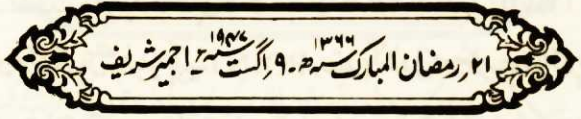 ۲۱؍رمضان المبارک ۱۳۶۶ سنہ ھ ۔ ۹؍اگست ۱۹۴۷ سنہ ء اجمیر شریف